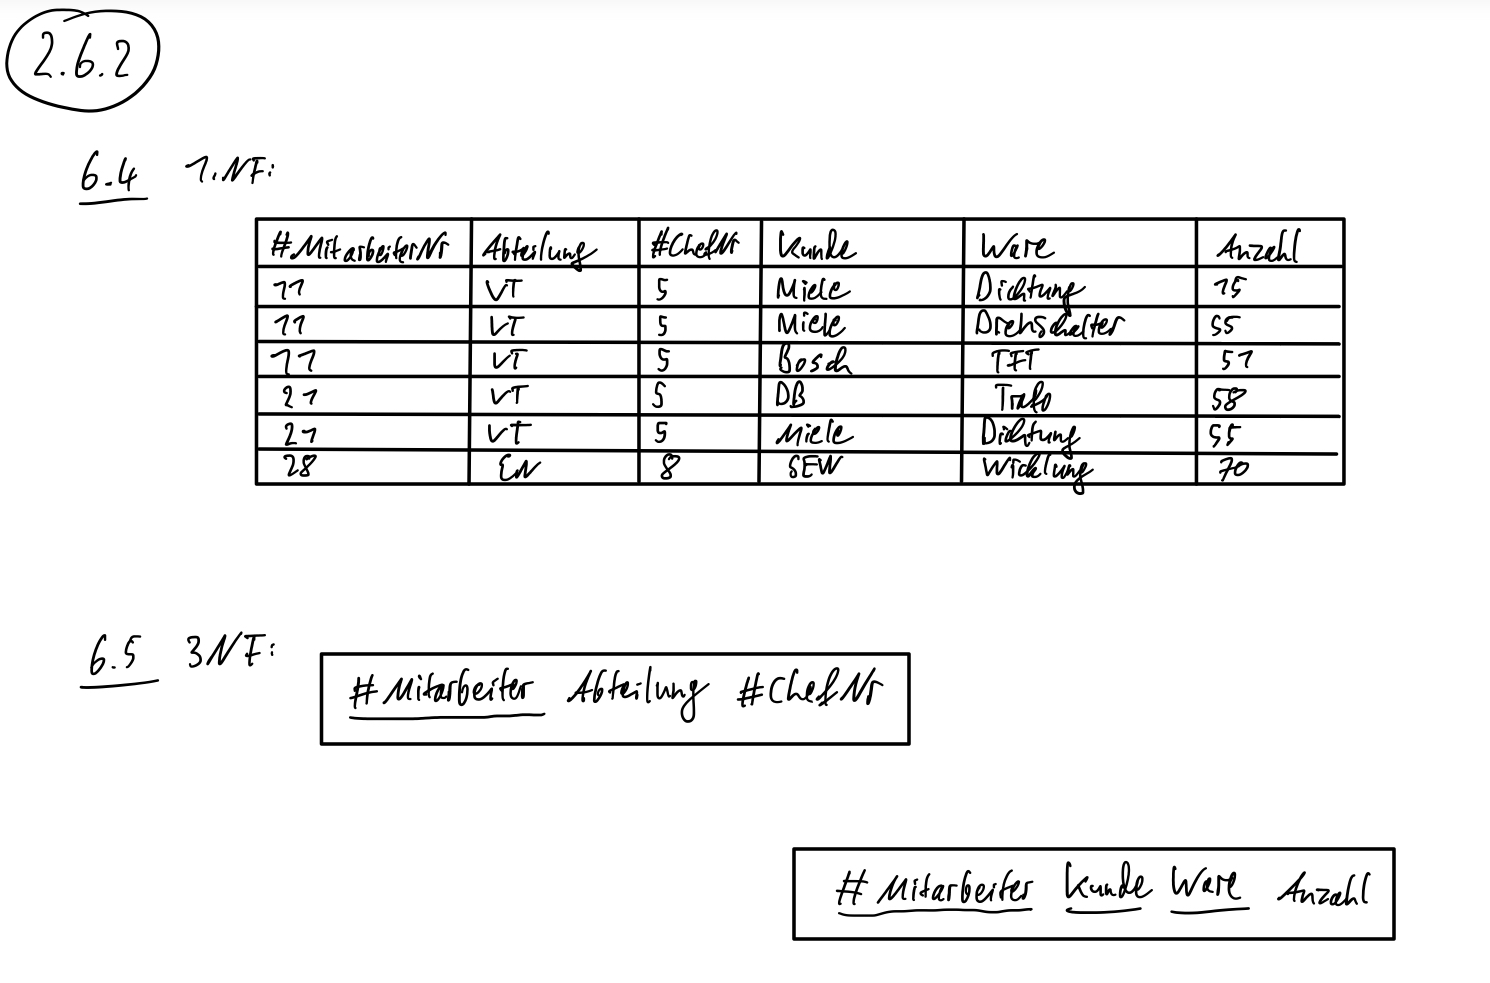 2.6.2
6.4 1.NF:
#MitarbeiterNr Abteilung #ChefNr Kunde Ware Anzahl
11 VT 5 Miele Dichtung 15
11 VT 5 Miele Drehschalter 55
11 VT 5 Bosch TFT 51
21 VT 5 DB Trafo 58
21 VT 5 Miele Dichtung 55
28 EN 8 SEW Wicklung 70
6.5 3NF:
#Mitarbeiter Abteilung #ChefNr
#Mitarbeiter Kunde Ware Anzahl